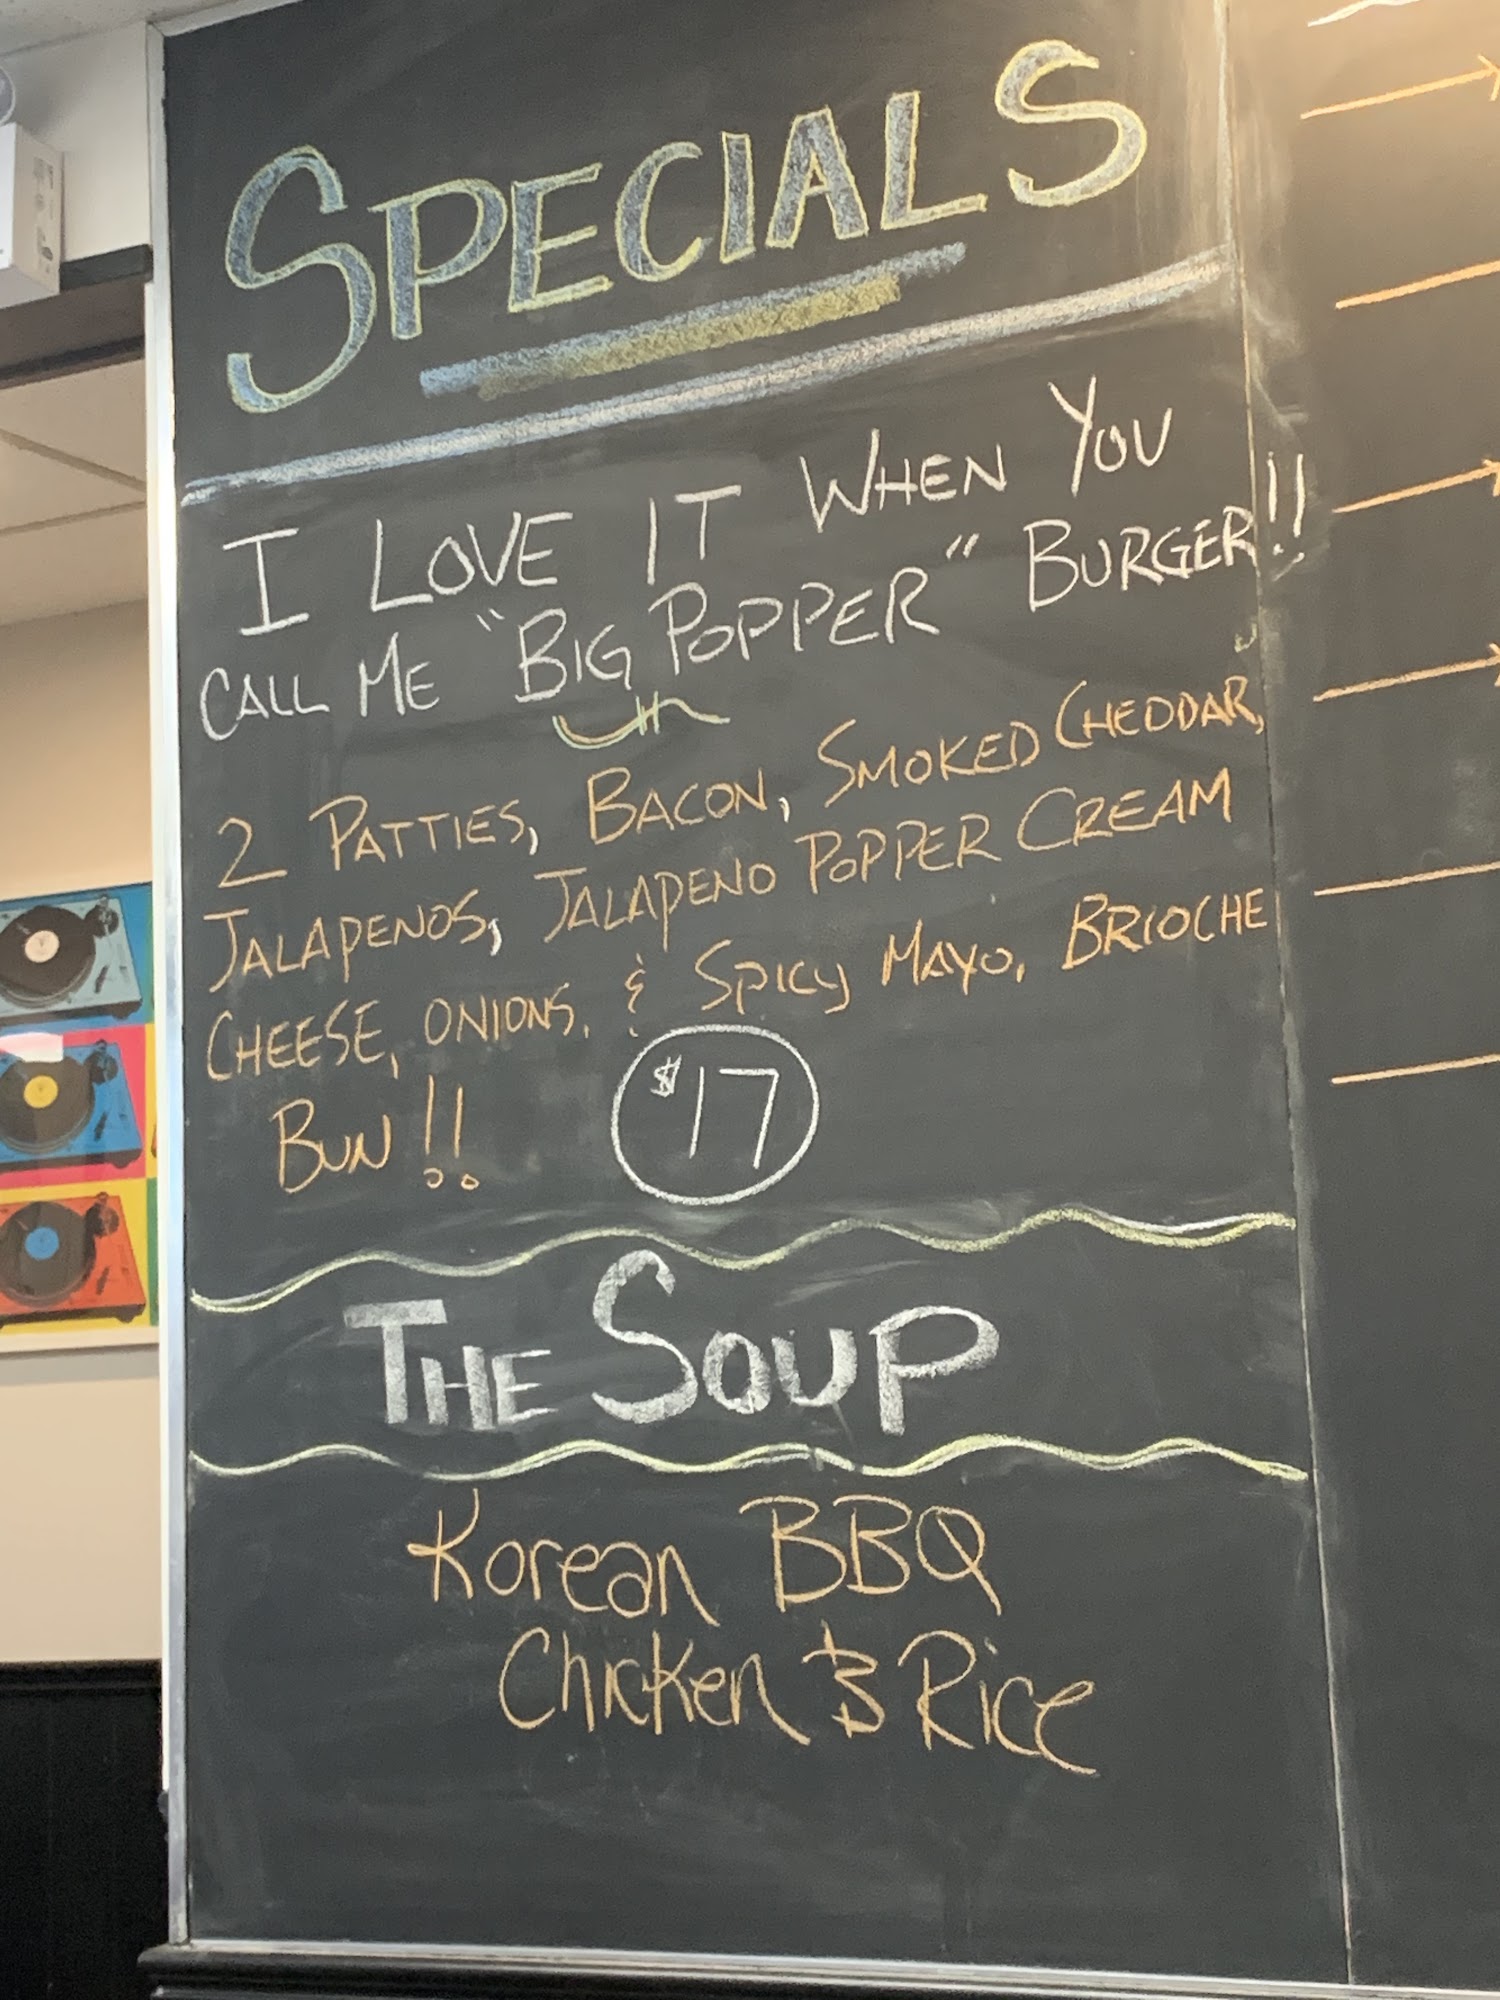 SPECIALS
I LOVE IT WHEN YOU
CALL ME "BIG POPPER" BURGER!!
2 PATTIES, BACON, SMOKED CHEDDAR,
JALAPENOS, JALAPENO POPPER CREAM
CHEESE, ONIONS, & SPICY MAYO, BRIOCHE
BUN!!
$17
THE SOUP
Korean BBQ
Chicken & Rice